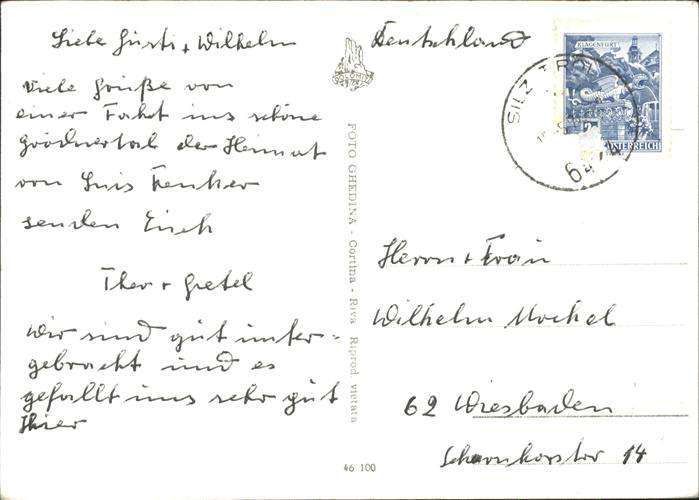 Liebe Gusti + Wilhelm
Viele Grüße von
einer Fahrt ins schöne
Grödnertal der Heimat
von Luis Trenker
senden Euch
Theo + Gretel
Wir sind gut unter-
gebracht und es
gefällt uns sehr gut
Hier
FOTO GHEDINA - Cortina - Riva Riprod. vietata
46 100
Deutschland
KLAGENFURT
ÖSTERREICH
SILZ TIROL
6424
Herrn + Frau
Wilhelm
62 Wiesbaden
14